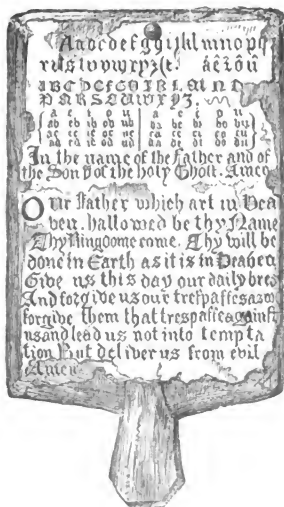 Aabcdefgghijklmnopq
rſstuvwxyz&c áéíóú
ABCDEFGHIKLMN
PQRSTUWXYZ.
a e i o u a e i o u
ab eb ib ob ub ba be bi bo bu
ac ec ic oc uc ca ce ci co cu
ad ed id od ud da de di do du
In the name of the Father and of
the Son & of the holy Ghoſt. Amen
Our Father which art in Hea
ven. hallowed be thy Name
Thy Kingdome come. Thy will be
done in Earth as it is in Heaven
Give us this day our daily bred
And forgive us our treſpaſſes as we
forgive them that treſpaſſe againſt
us and lead us not into tempta
tion But deliver us from evil
Amen